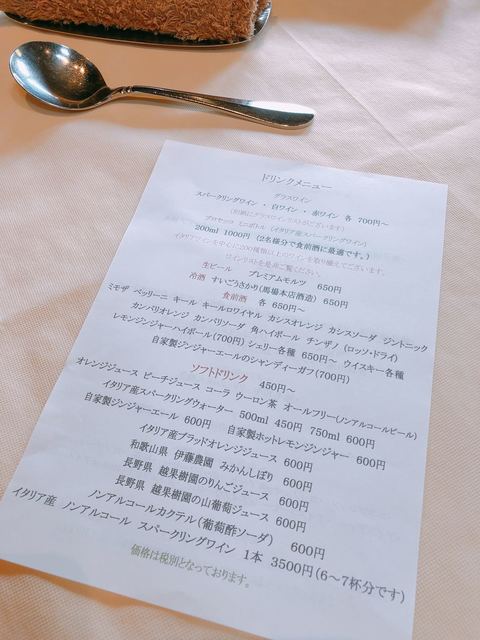 ドリンクメニュー
グラスワイン
スパークリングワイン ・ 白ワイン ・ 赤ワイン 各 700円～
(別紙にグラスワインリストがございます)
プロセッコ ミニボトル (イタリア産スパークリングワイン)
200ml 1000円 (2名様分で食前酒に最適です。)
イタリアワインを中心に200種類以上のワインを取り揃えてございます。
ワインリストを是非ご覧ください。
生ビール プレミアムモルツ 650円
冷酒 すいごうさかり(馬場本店酒造) 650円
食前酒 各 650円～
ミモザ ベッリーニ キール キールロワイヤル カシスオレンジ カシスソーダ ジントニック
カンパリオレンジ カンパリソーダ 角ハイボール チンザノ (ロッソ・ドライ)
レモンジンジャーハイボール(700円) シェリー各種 650円～ ウイスキー各種
自家製ジンジャーエールのシャンディーガフ(700円)
ソフトドリンク 450円～
オレンジジュース ピーチジュース コーラ ウーロン茶 オールフリー(ノンアルコールビール)
イタリア産スパークリングウォーター 500ml 450円 750ml 600円
自家製ジンジャーエール 600円 自家製ホットレモンジンジャー 600円
イタリア産ブラッドオレンジジュース 600円
和歌山県 伊藤農園 みかんしぼり 600円
長野県 越果樹園のりんごジュース 600円
長野県 越果樹園の山葡萄ジュース 600円
ノンアルコールカクテル(葡萄酢ソーダ) 600円
イタリア産 ノンアルコール スパークリングワイン 1本 3500円(6～7杯分です)
価格は税別となっております。